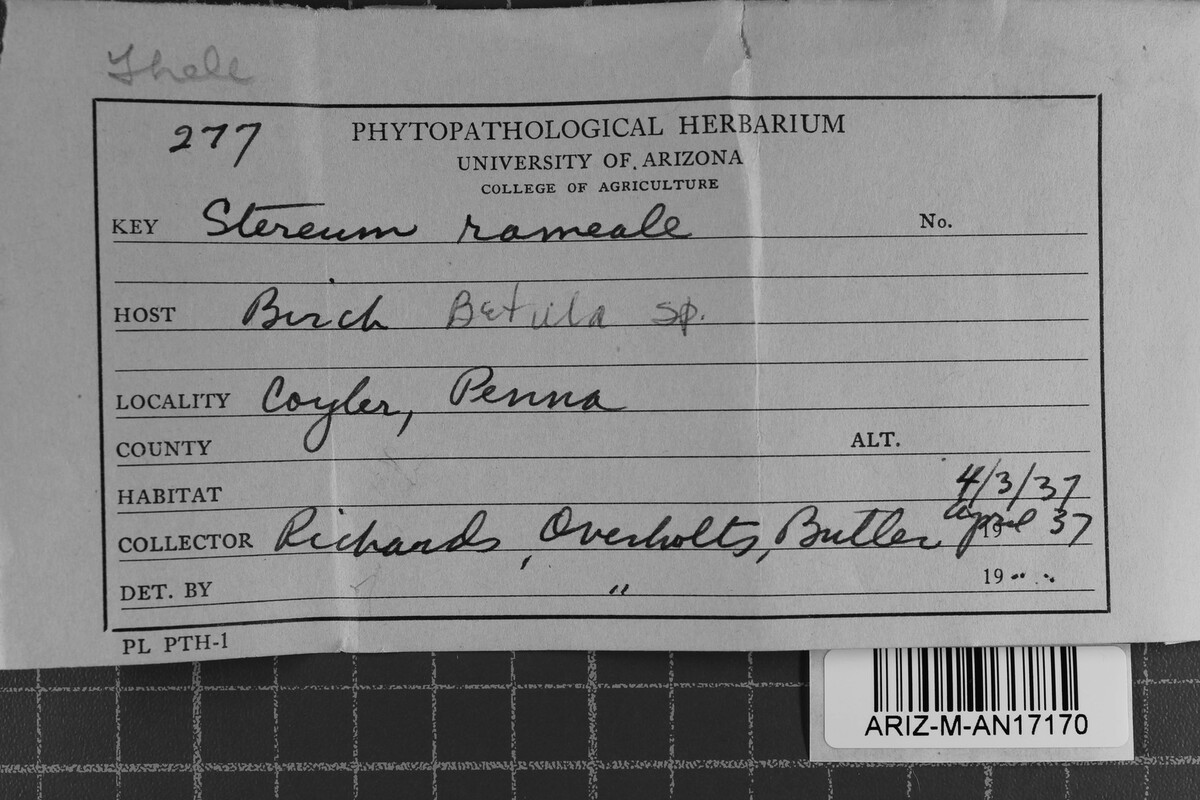 Thele
277
PHYTOPATHOLOGICAL HERBARIUM
UNIVERSITY OF ARIZONA
COLLEGE OF AGRICULTURE
KEY Stereum rameale No.
HOST Birch Betula sp.
LOCALITY Coyler, Penna
COUNTY ALT.
HABITAT 4/3/37
COLLECTOR Richards, Overholts, Butler April 1937
DET. BY " 19 " "
PL PTH-1
ARIZ-M-AN17170